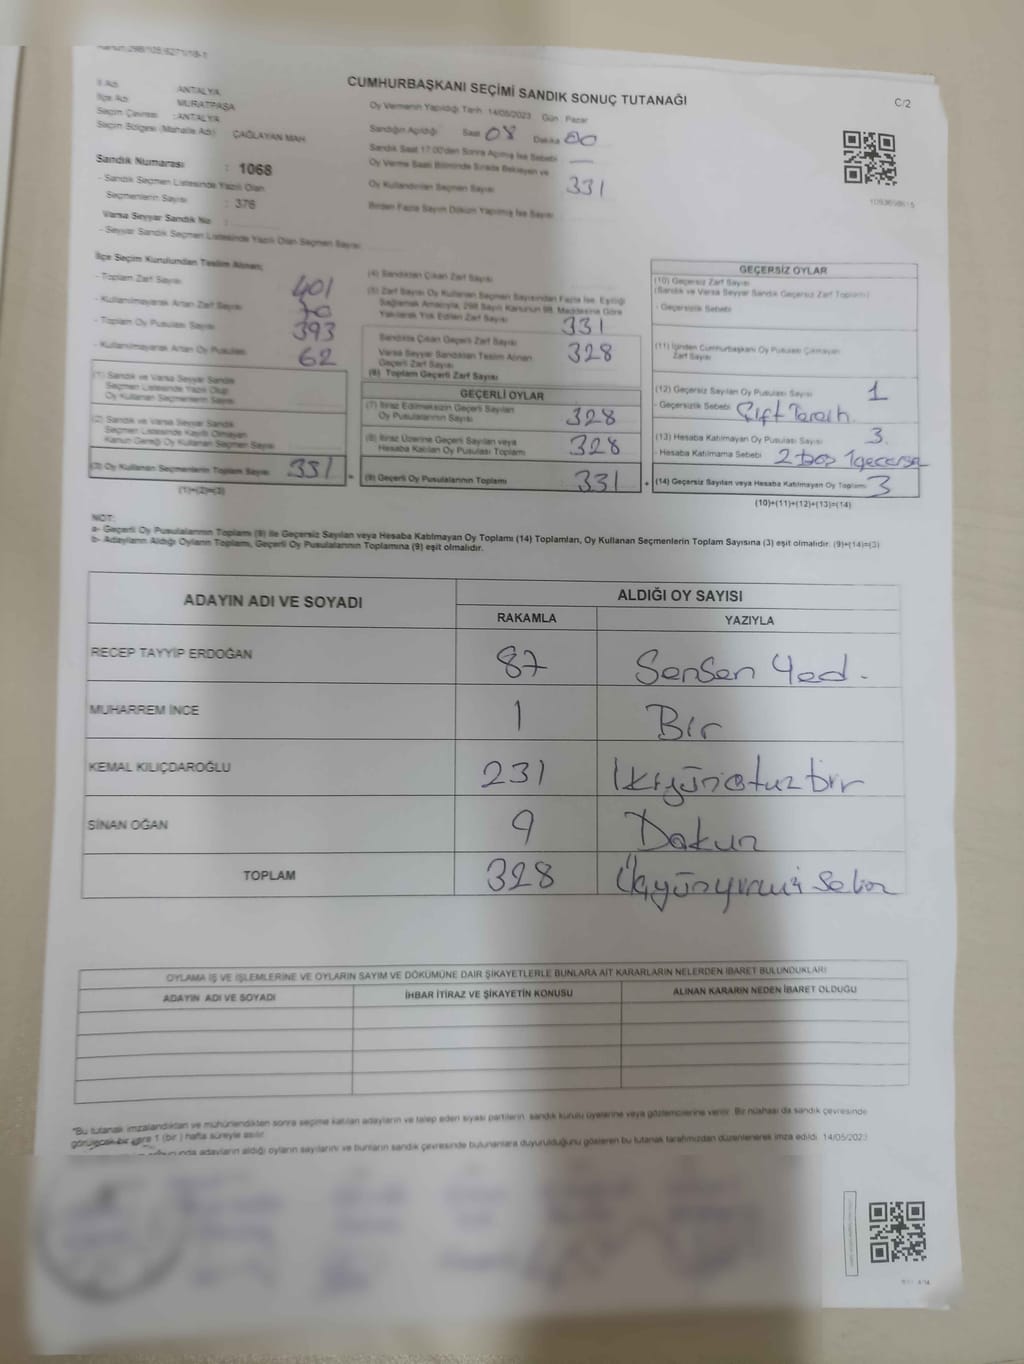 CUMHURBAŞKANI SEÇİMİ SANDIK SONUÇ TUTANAĞI
C/2
İl Adı : ANTALYA
İlçe Adı : MURATPAŞA
Seçim Çevresi : ANTALYA
Seçim Bölgesi (Mahalle Adı) : ÇAĞLAYAN MAH
Sandık Numarası : 1068
- Sandık Seçmen Listesinde Yazılı Olan
Seçmenlerin Sayısı : 376
Varsa Seyyar Sandık No :
- Seyyar Sandık Seçmen Listesinde Yazılı Olan Seçmen Sayısı
Oy Vermenin Yapıldığı Tarih : 14/05/2023 Gün : Pazar
Sandığın Açıldığı Saat 08 Dakika 00
Sandık Saat 17:00'den Sonra Açılmış İse Sebebi —
Oy Verme Saati Bitiminde Sırada Bekleyen ve
Oy Kullandırılan Seçmen Sayısı 331
Birden Fazla Sayım Döküm Yapılmış İse Sayısı
İlçe Seçim Kurulundan Teslim Alınan;
- Toplam Zarf Sayısı 401
- Kullanılmayarak Artan Zarf Sayısı 70
- Toplam Oy Pusulası Sayısı 393
- Kullanılmayarak Artan Oy Pusulası 62
(1) Sandık ve Varsa Seyyar Sandık
Seçmen Listesinde Yazılı Olup
Oy Kullanan Seçmenlerin Sayısı
(2) Sandık ve Varsa Seyyar Sandık
Seçmen Listesinde Kayıtlı Olmayan
Kanun Gereği Oy Kullanan Seçmen Sayısı
(3) Oy Kullanan Seçmenlerin Toplam Sayısı 331 =
(1)+(2)=(3)
(4) Sandıktan Çıkan Zarf Sayısı
(5) Zarf Sayısı Oy Kullanan Seçmen Sayısından Fazla İse, Eşitliği
Sağlamak Amacıyla, 298 Sayılı Kanunun 98. Maddesine Göre
Yakılarak Yok Edilen Zarf Sayısı 331
Sandıkta Çıkan Geçerli Zarf Sayısı
Varsa Seyyar Sandıktan Teslim Alınan 328
Geçerli Zarf Sayısı
(6) Toplam Geçerli Zarf Sayısı
GEÇERLİ OYLAR
(7) İtiraz Edilmeksizin Geçerli Sayılan
Oy Pusulalarının Sayısı 328
(8) İtiraz Üzerine Geçerli Sayılan veya
Hesaba Katılan Oy Pusulası Toplamı 328
(9) Geçerli Oy Pusulalarının Toplamı 331 +
GEÇERSİZ OYLAR
(10) Geçersiz Zarf Sayısı
(Sandık ve Varsa Seyyar Sandık Geçersiz Zarf Toplamı)
- Geçersizlik Sebebi
(11) İçinden Cumhurbaşkanı Oy Pusulası Çıkmayan
Zarf Sayısı
(12) Geçersiz Sayılan Oy Pusulası Sayısı 1
- Geçersizlik Sebebi Çift Tercih.
(13) Hesaba Katılmayan Oy Pusulası Sayısı 3
- Hesaba Katılmama Sebebi 2 boş 1geçersiz
(14) Geçersiz Sayılan veya Hesaba Katılmayan Oy Toplamı 3
(10)+(11)+(12)+(13)=(14)
NOT:
a- Geçerli Oy Pusulalarının Toplamı (9) ile Geçersiz Sayılan veya Hesaba Katılmayan Oy Toplamı (14) Toplamları, Oy Kullanan Seçmenlerin Toplam Sayısına (3) eşit olmalıdır. (9)+(14)=(3)
b- Adayların Aldığı Oyların Toplamı, Geçerli Oy Pusulalarının Toplamına (9) eşit olmalıdır.
ADAYIN ADI VE SOYADI
ALDIĞI OY SAYISI
RAKAMLA YAZIYLA
RECEP TAYYİP ERDOĞAN 87 Sensen Yed.
MUHARREM İNCE 1 Bir
KEMAL KILIÇDAROĞLU 231 İkiyüzotuzbir
SİNAN OĞAN 9 Dokuz
TOPLAM 328
OYLAMA İŞ VE İŞLEMLERİNE VE OYLARIN SAYIM VE DÖKÜMÜNE DAİR ŞİKAYETLERLE BUNLARA AİT KARARLARIN NELERDEN İBARET BULUNDUKLARI
ADAYIN ADI VE SOYADI İHBAR İTİRAZ VE ŞİKAYETİN KONUSU ALINAN KARARIN NEDEN İBARET OLDUĞU
"Bu tutanak imzalandıktan ve mühürlendikten sonra seçime katılan adayların ve talep eden siyasi partilerin, sandık kurulu üyelerine veya gözlemcilerine verilir. Bir nüshası da sandık çevresinde
görülecek bir yere 1 (bir) hafta süreyle asılır.
adayların aldığı oyların sayılarını ve bunların sandık çevresinde bulunanlara duyurulduğunu gösteren bu tutanak tarafımızdan düzenlenerek imza edildi. 14/05/2023